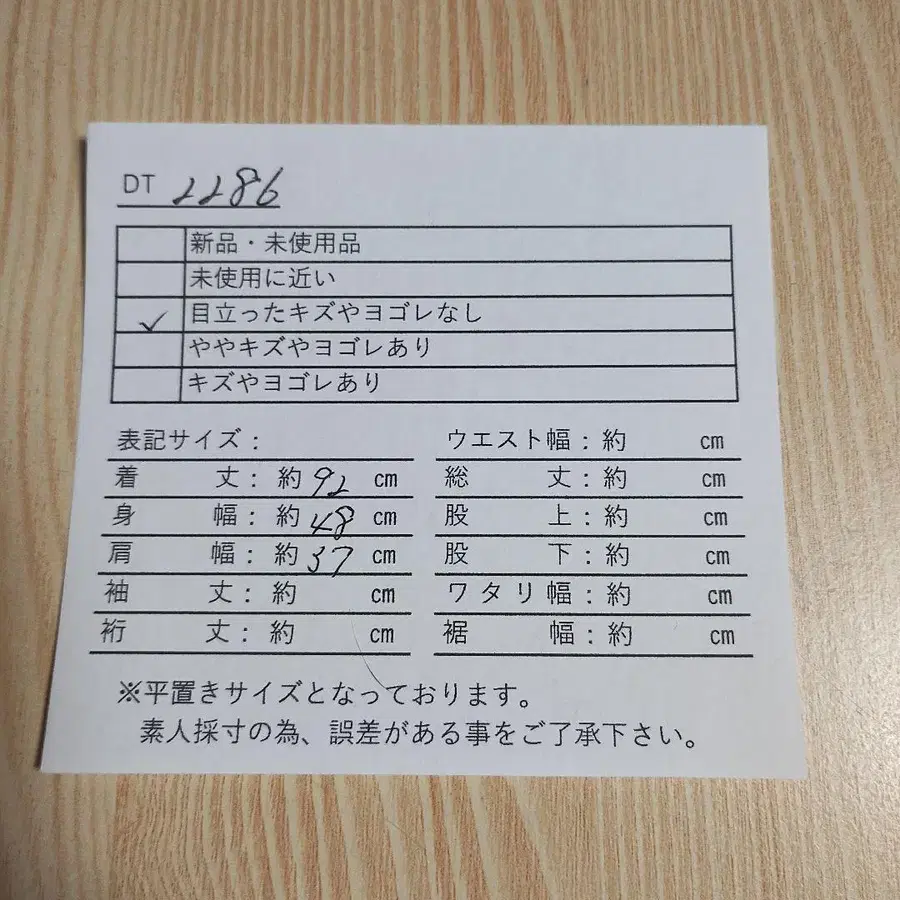 DT 2286
新品・未使用品
未使用に近い
✓ 目立ったキズやヨゴレなし
ややキズやヨゴレあり
キズやヨゴレあり
表記サイズ:
着 丈: 約 92 cm
身 幅: 約 48 cm
肩 幅: 約 37 cm
袖 丈: 約 cm
裄 丈: 約 cm
ウエスト幅: 約 cm
総 丈: 約 cm
股 上: 約 cm
股 下: 約 cm
ワタリ幅: 約 cm
裾 幅: 約 cm
※平置きサイズとなっております。
素人採寸の為、誤差がある事をご了承下さい。